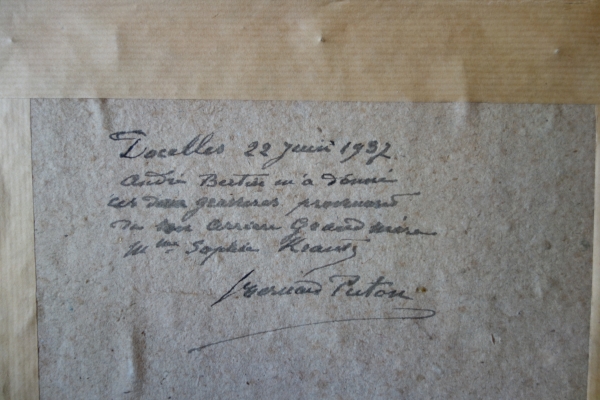 Docelles 22 Juin 1937
André Bertin m'a donné
ces deux gravures provenant
de son arrière Grand mère
Mme Sophie
Bernard Puton